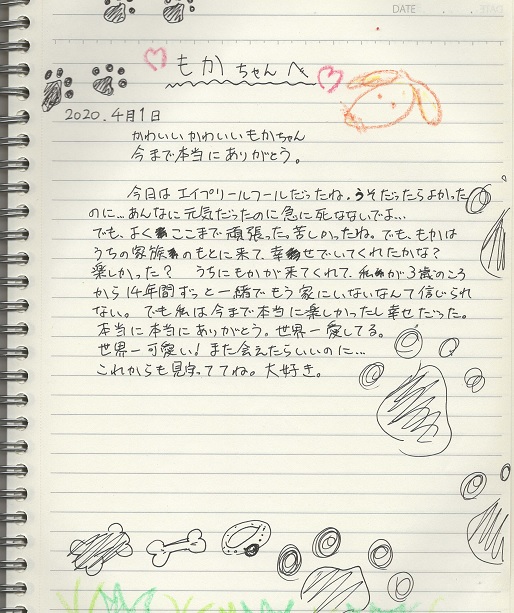 DATE
もかちゃんへ
2020.4月1日
かわいいかわいいもかちゃん
今まで本当にありがとう。
今日はエイプリールフールだったね。うそだったらよかった
のに…あんなに元気だったのに急に死なないでよ…
でも、よくここまで頑張った。苦しかったね。でも、もかは
うちの家族のもとに来て、幸せでいてくれたかな？
楽しかった？ うちにもかが来てくれて、私が3歳のころ
から14年間ずっと一緒でもう家にいないなんて信じられ
ない。でも私は今まで本当に楽しかったし幸せだった。
本当に本当にありがとう。世界一愛してる。
世界一可愛い！また会えたらいいのに…
これからも見守っててね。大好き。